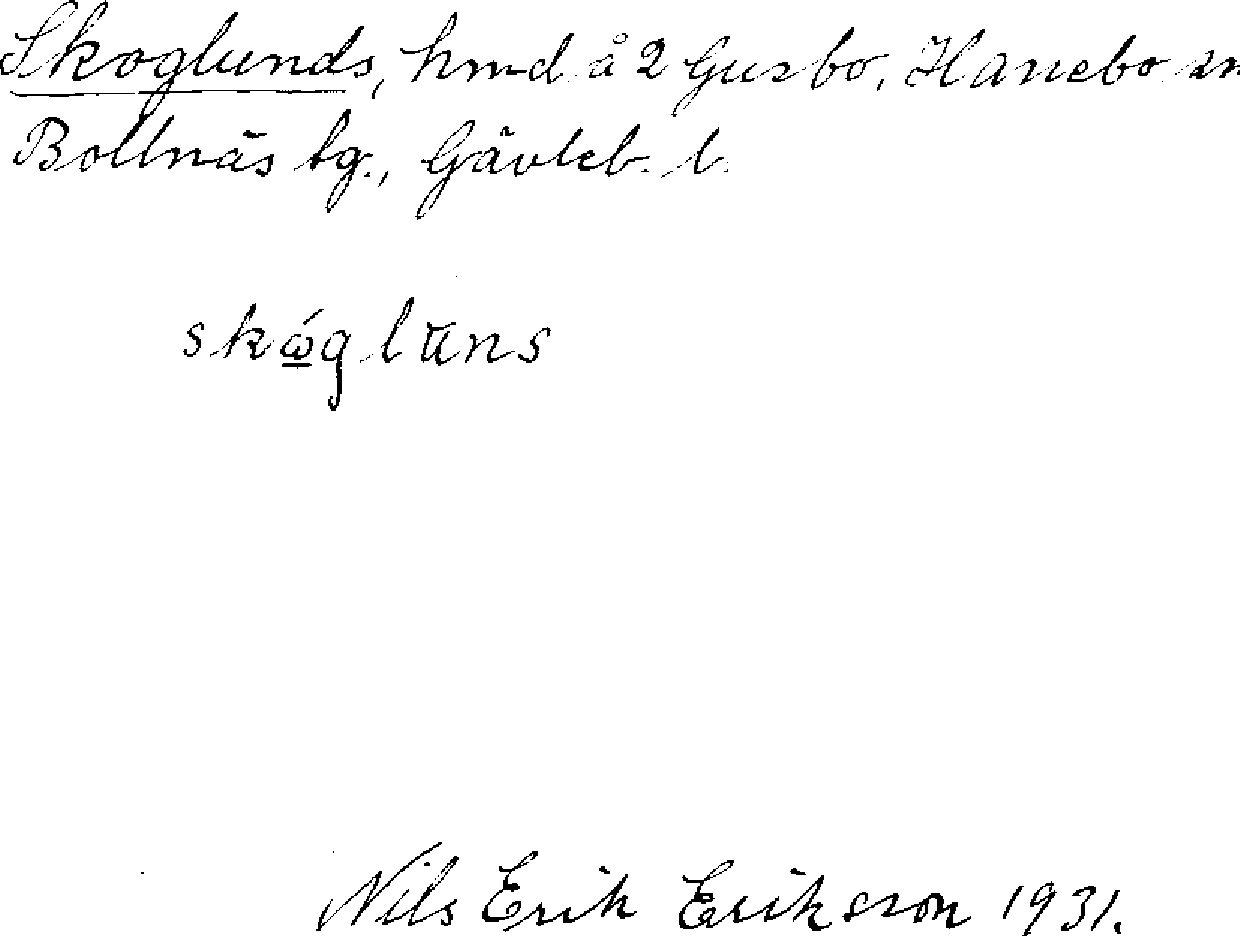 Skoglunds, hmd å 2 Gusbo, Hanebo sn
Bollnäs tg., Gävleb. l.
skώ̲glu̅ns
Nils Erik Eriksson 1931.